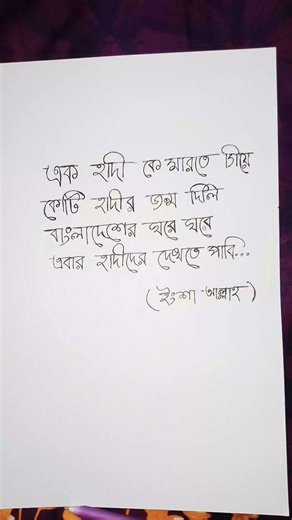 এক হাদী কে মারতে গিয়ে
কোটি হাদীর জন্ম দিলি
বাংলাদেশের ঘরে ঘরে
এবার হাদীদের দেখতে পাবি...
(ইংশা-আল্লাহ)